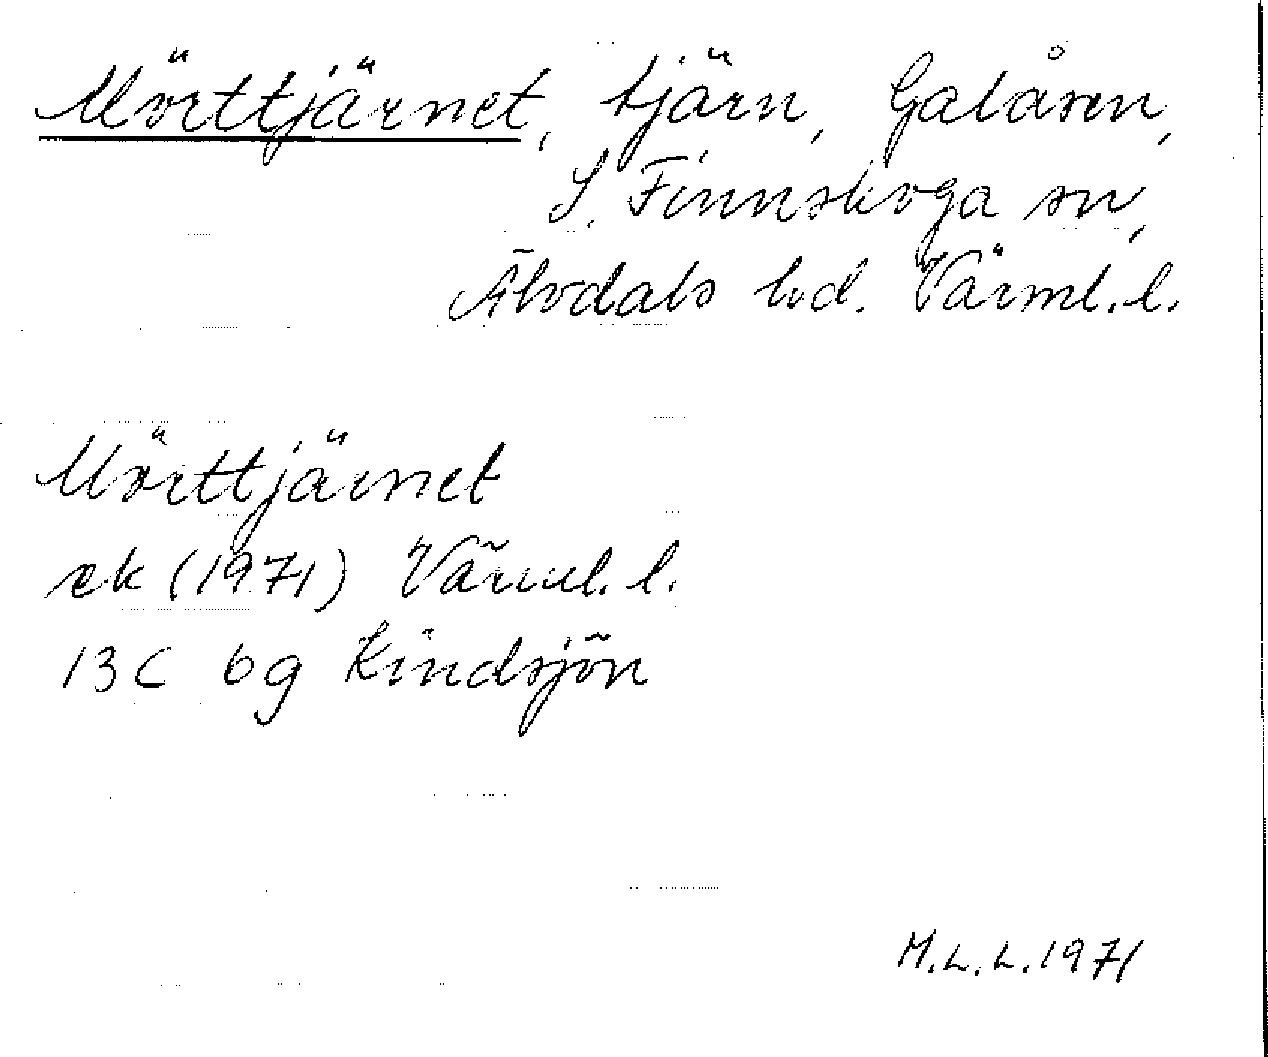 Mörttjärnet, tjärn, Galåsen,
S. Finnskoga sn,
Älvdals hd. Värml. l.
Mörttjärnet
ek (1971) Värml. l.
13C 6g Kindsjön
M.L.L. 1971